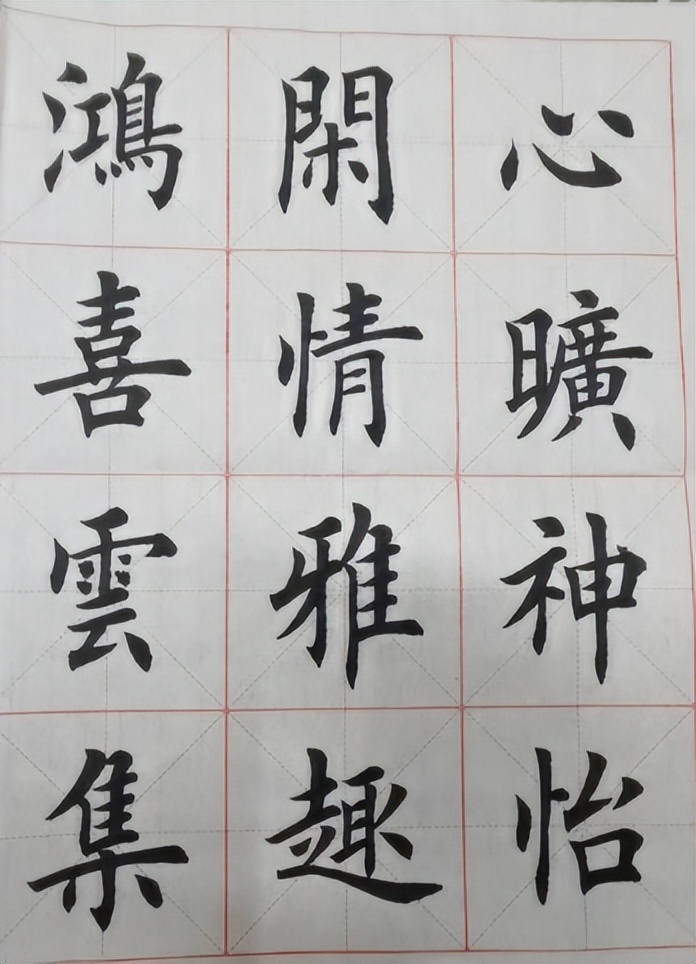 心曠神怡
閑情雅趣
鴻喜雲集